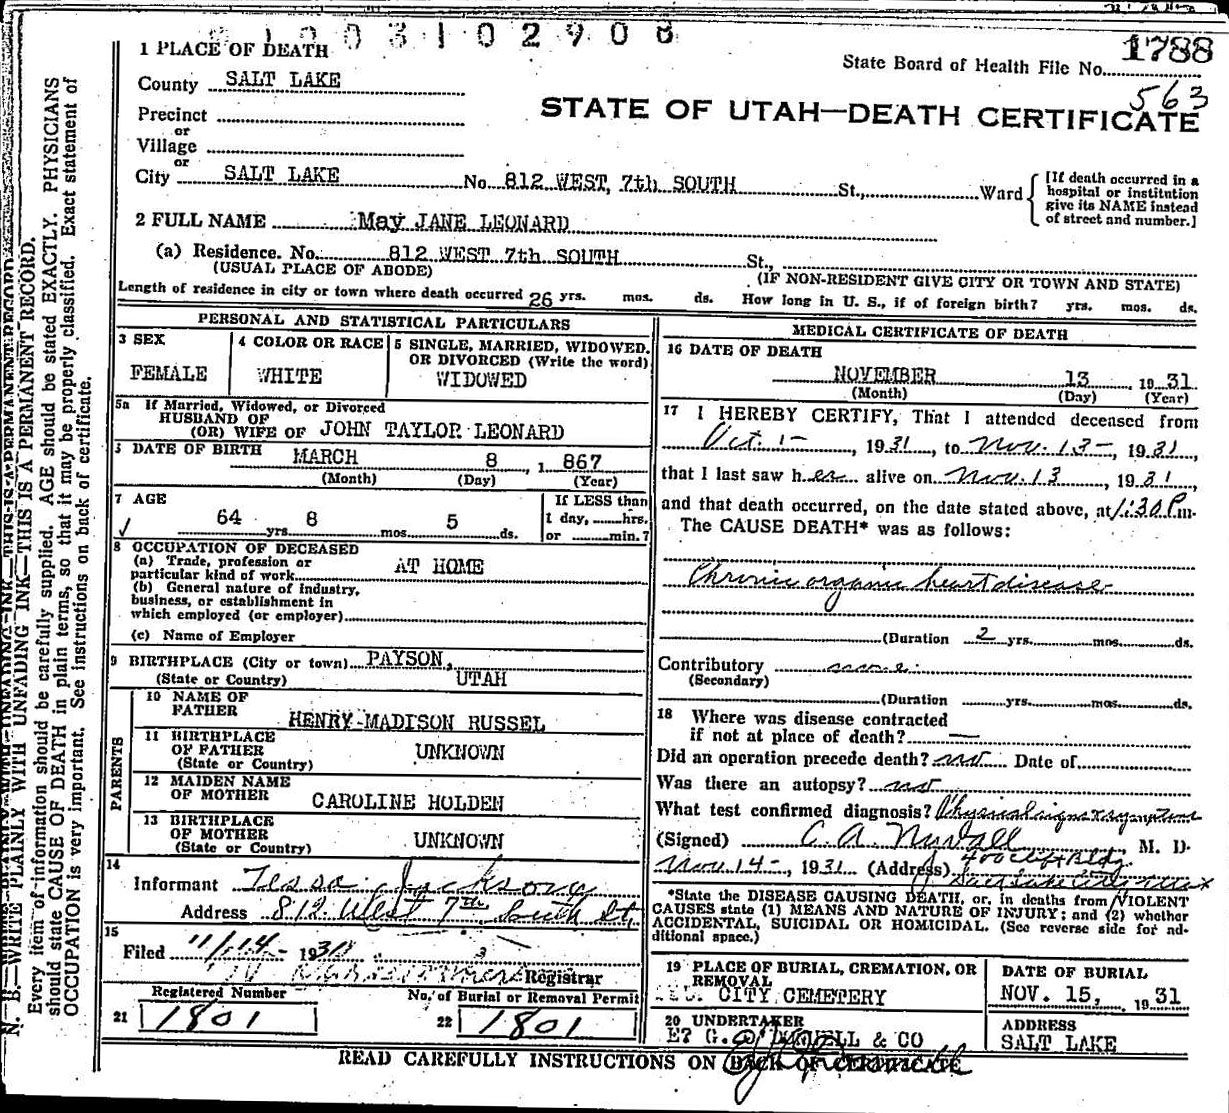 0 0 3 1 0 2 9 0 8
1 PLACE OF DEATH
County SALT LAKE
Precinct
or
Village
or
City SALT LAKE No. 812 WEST, 7th SOUTH St., Ward
[If death occurred in a hospital or institution give its NAME instead of street and number.]
State Board of Health File No. 1788
563
STATE OF UTAH—DEATH CERTIFICATE
2 FULL NAME May JANE LEONARD
(a) Residence. No. 812 WEST 7th SOUTH St.,
(USUAL PLACE OF ABODE) (IF NON-RESIDENT GIVE CITY OR TOWN AND STATE)
Length of residence in city or town where death occurred 26 yrs. mos. ds. How long in U. S., if of foreign birth? yrs. mos. ds.
PERSONAL AND STATISTICAL PARTICULARS
3 SEX
FEMALE
4 COLOR OR RACE
WHITE
5 SINGLE, MARRIED, WIDOWED, OR DIVORCED (Write the word)
WIDOWED
5a If Married, Widowed, or Divorced
HUSBAND OF
(OR) WIFE OF JOHN TAYLOR LEONARD
DATE OF BIRTH MARCH 8, 1867
(Month) (Day) (Year)
7 AGE
64 yrs. 8 mos. 5 ds.
If LESS than
1 day, hrs.
or min.?
8 OCCUPATION OF DECEASED
(a) Trade, profession or
particular kind of work AT HOME
(b) General nature of industry,
business, or establishment in
which employed (or employer)
(c) Name of Employer
9 BIRTHPLACE (City or town) PAYSON,
(State or Country) UTAH
PARENTS
10 NAME OF
FATHER HENRY MADISON RUSSEL
11 BIRTHPLACE
OF FATHER UNKNOWN
(State or Country)
12 MAIDEN NAME
OF MOTHER CAROLINE HOLDEN
13 BIRTHPLACE
OF MOTHER UNKNOWN
(State or Country)
14
Informant Tessa Jackson
Address 812 West 7th South St
15
Filed 11/14- 1931
Registrar
Registered Number
21 1801
No. of Burial or Removal Permit
22 1801
MEDICAL CERTIFICATE OF DEATH
16 DATE OF DEATH
NOVEMBER 13, 1931
(Month) (Day) (Year)
17 I HEREBY CERTIFY, That I attended deceased from
Oct. 1-, 1931, to Nov. 13-, 1931,
that I last saw her alive on Nov. 13, 1931,
and that death occurred, on the date stated above, at 1:30 P.m.
The CAUSE DEATH* was as follows:
Chronic organic heart disease
(Duration 2 yrs. mos. ds.
Contributory none.
(Secondary)
(Duration yrs. mos. ds.
18 Where was disease contracted
if not at place of death? —
Did an operation precede death? no Date of
Was there an autopsy? no
What test confirmed diagnosis? Physical signs & symptoms
(Signed) C. A. M. D.
Nov. 14-, 1931 (Address) 400 Clift Bldg.
Salt Lake City
*State the DISEASE CAUSING DEATH, or, in deaths from VIOLENT
CAUSES state (1) MEANS AND NATURE OF INJURY; and (2) whether
ACCIDENTAL, SUICIDAL OR HOMICIDAL. (See reverse side for ad-
ditional space.)
19 PLACE OF BURIAL, CREMATION, OR
REMOVAL
CITY CEMETERY
DATE OF BURIAL
NOV. 15, 1931
20 UNDERTAKER
& CO
ADDRESS
SALT LAKE
READ CAREFULLY INSTRUCTIONS ON BACK OF CERTIFICATE
N. B.—WRITE PLAINLY WITH UNFADING INK—THIS IS A PERMANENT RECORD.
Every item of information should be carefully supplied. AGE should be stated EXACTLY. PHYSICIANS
should state CAUSE OF DEATH in plain terms, so that it may be properly classified. Exact statement of
OCCUPATION is very important. See instructions on back of certificate.